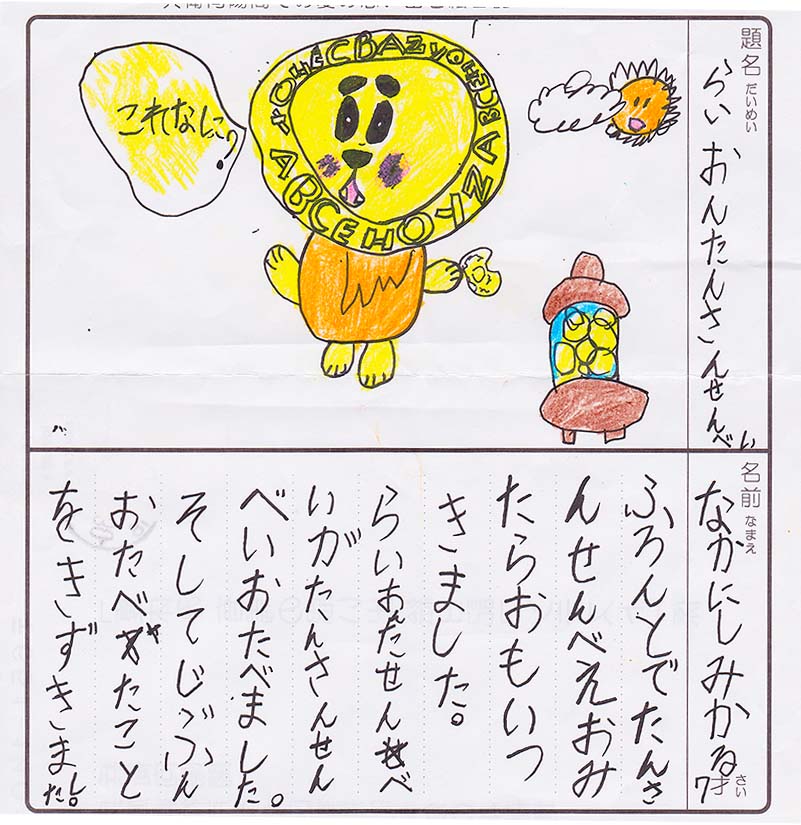 題名 だいめい
らいおんたんさんせんべい
これなに?
ABCEHOYZABC
名前 なまえ
なかにしみかる
7才 さい
ふろんとでたんさ
んせんべえおみ
たらおもいつ
きました。
らいおんたせんべ
いがたんさんせん
べいおたべました。
そしてじぶん
おたべたこと
をきずきました。